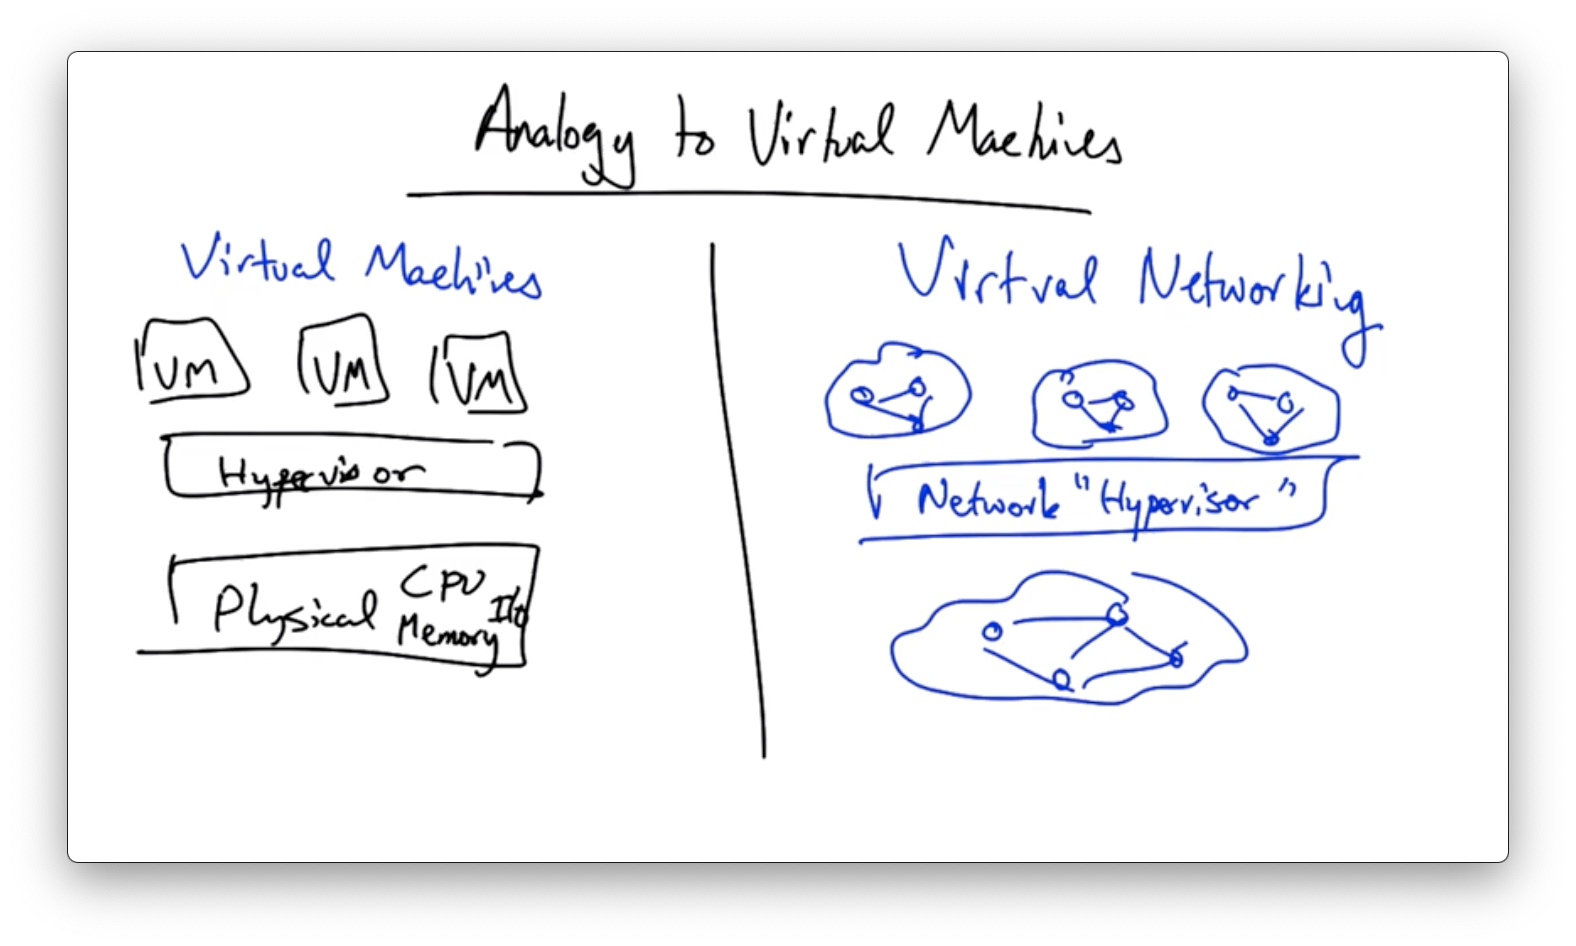 Analogy to Virtual Machines
Virtual Machines
VM VM VM
Hypervisor
Physical CPU Memory I/O
Virtual Networking
Network "Hypervisor"